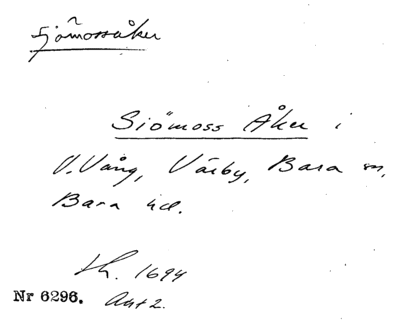 sjömossåker
Siömoss Åker i
V. Vång, Värby, Bara sn,
Bara hd.
Lh. 1694
Nr 6296. Ant 2.